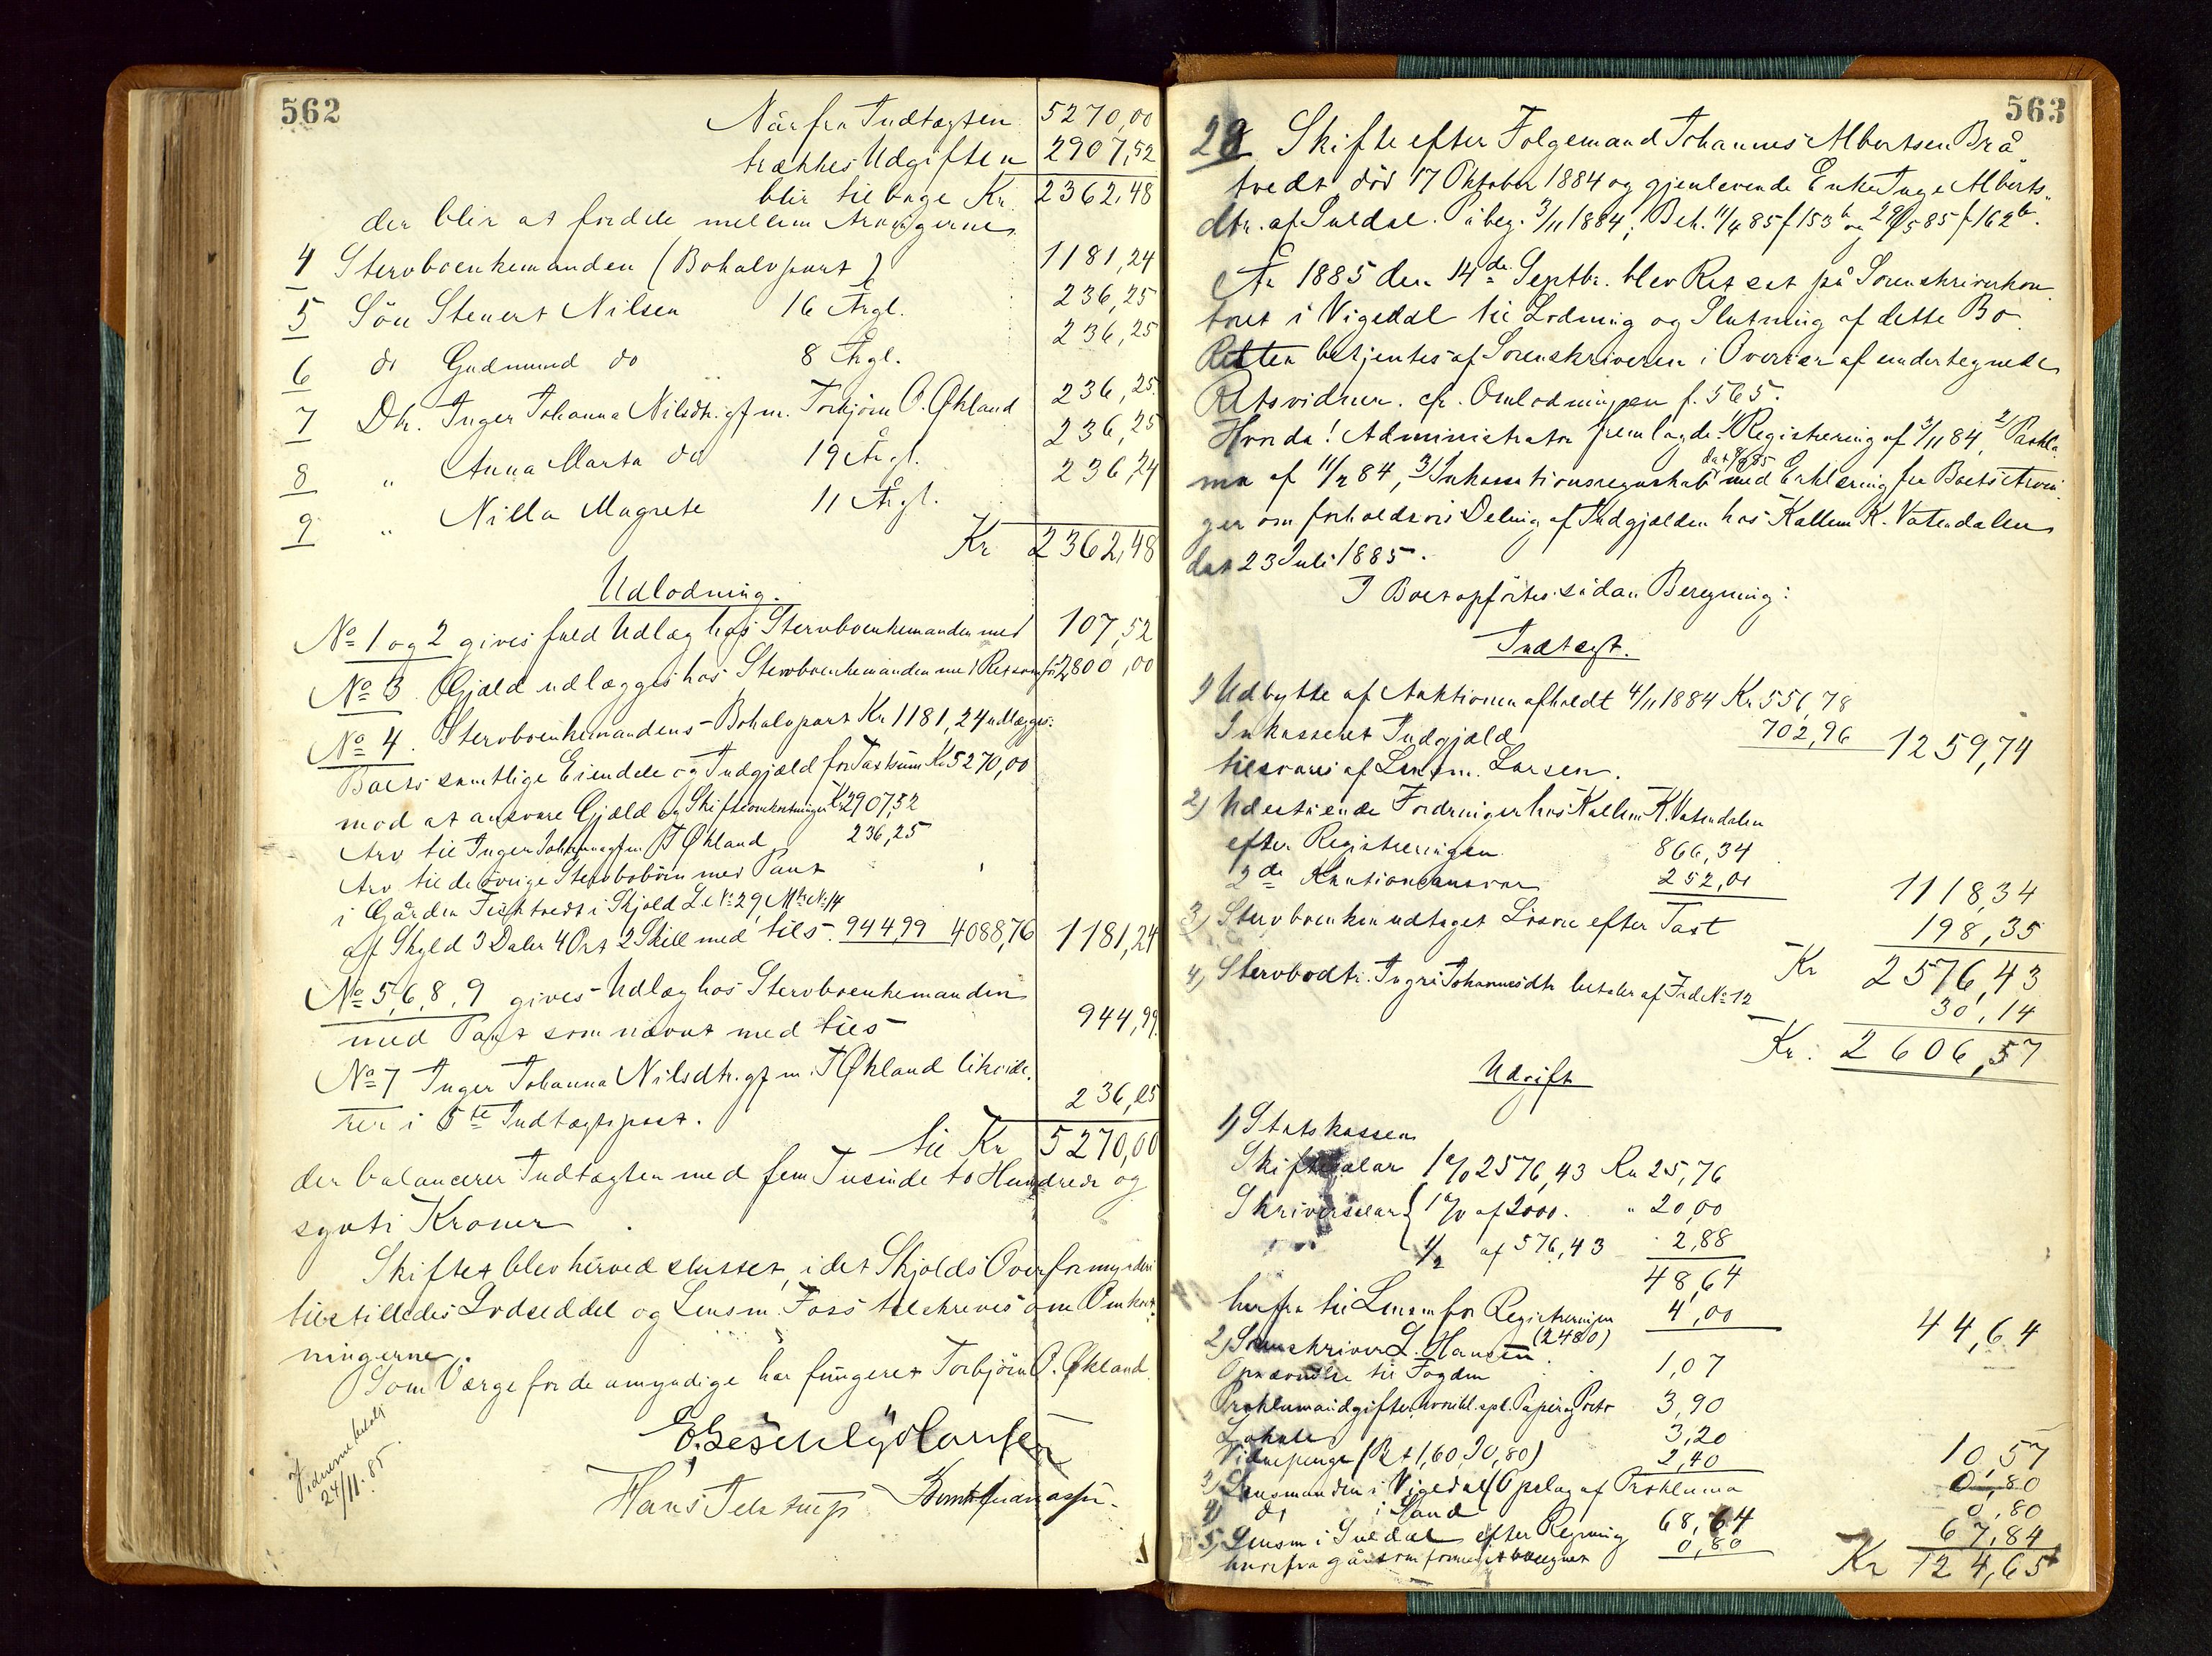 562
Når fra Indtægten 5270,00
trækkes Udgiften 2907,52
blir tilbage Kr. 2362,48
der blir at fordele mellem Arvingerne
4 Stervboenkemanden (Bohalvpart) 1181,24
5 Sön Stenert Nilsen 16 Årgl. 236,25
6 do Gudmund do 8 Årgl. 236,25
7 Dtr. Inger Johanna Nilsdtr. gf m. Torbjörn O. Økland 236,25
8 " Anna Marta do 19 Årgl. 236,25
9 " Nilla Magrete 11 Årgl. 236,24
Kr 2362,48
Udlodning.
No 1 og 2 gives fuld Udlæg hos Stervboenkemanden med 107,52
No 3. Gjæld udlægges hos Stervboenkemanden med 2800,00
No 4. Stervboenkemandens Bohalvpart Kr 1181,24 udlægges
Boets samtlige Eiendele og Indgjæld for Taxtsum Kr 5270,00
mod at ansvare Gjæld og Skifteomkostninger Kr 2907,52
Arv til Inger Johanna gf m. T Økland 236,25
Arv til de övrige Stervbobörn med Pant
i Gården Fisktvedt i Skjold L No 29, Mk No 14
af Skyld 3 Daler 4 Ort 2 Skill med tils. 944,99 4088,76 1181,24
No 5, 6, 8, 9 gives Udlæg hos Stervboenkemanden
med Pant som nævnt med tils 944,99
No 7 Inger Johanna Nilsdtr. gf m. T Økland likvide-
rer i 5te Indtægtspost. 236,25
til Kr 5270,00
der balancerer Indtægten med fem Tusinde to Hundrede og
sytti Kroner.
Skiftet blev herved sluttet, idet Skjolds Overformynderi
tilstilledes Lodseddel og Lensm. Foss tilskreves om Omkost-
ningerne.
Som Værge for de umyndige har fungeret Torbjörn O. Økland.
Vidnerne betalt
24/11. 85.
Hans Telstrup
563
28 Skifte efter Folgemand Johannes Albertsen Brå-
tvedt död 17 Oktober 1884 og gjenlevende Enke Inge Alberts-
dtr. af Suldal. Påbeg. 3/11 1884; Beh. 11/4 85 f 153 b og 29/5 85 f 162 b.
År 1885 den 14de Septbr. blev Ret sat på Sorenskriverkon-
toret i Vigedal til Lodning og Slutning af dette Bo
Retten betjentes af Sorenskriveren i Overvær af undertegnede
Retsvidner. cfr. Omlodningen f. 565.
Hvorda! Administrator fremlagde 1) Registrering af 3/11 84, 2) Prokla-
ma af 11/2 84, 3) Inkassationsregnskab med Erklæring fra Boets Arvin-
ger om forholdsvis Deling af Indgjælden hos Kallem K. Vatendalen
dat 23 Juli 1885.
I Boet opförtes sådan Beregning:
Indtægt.
1) Udbytte af Auktionen afholdt 4/11 1884 Kr 556,78
Inkasseret Indgjæld 702,96 1259,74
tilsvares af Lensm. Larsen.
2) Udestående Fordringer hos Kallem K. Vatendalen
efter Registreringen 866,34
2de Kautionsansvar 252,00 1118,34
3) Stervboenken udtaget Lösöre efter Taxt 198,35
Kr 2576,43
4) Stervbodtr. Ingri Johannesdtr betaler af Frd No 12 30,14
Kr. 2606,57
Udgift
1) Statskassen
Skiftesalær 1% 2576,43 Kr 25,76
Skriversalær 1% af 2000. " 20,00
1/2 af 576,43 2,88
48,64
herfra til Lensm for Registreringen 4,00 44,64
2) Sorenskriver L. Hansen (2480)
Opnævnelse til Fogden 1,07
Proklamaudgifter, spl. Papir og Porto 3,90
Lokale 3,20
Vidnepenge (Ret 1,60, 0,80) 2,40 10,57
3) Lensmanden i Vigedal Opslag af Proklama 0,80
4) do i Sand 0,80
5) Lensm i Suldal efter Regning 68,64
0,80 67,84
Kr 124,65